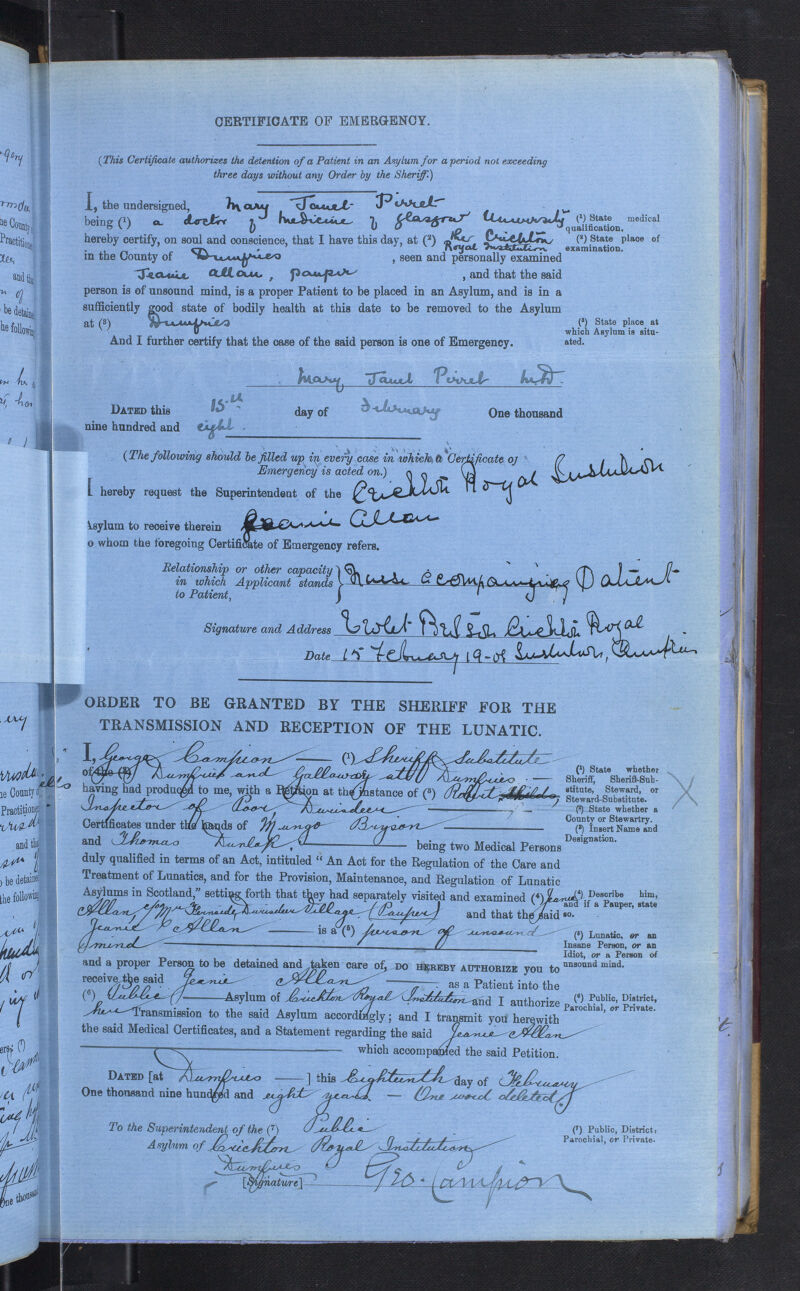 CERTIFICATE OF EMERGENCY.
(This Certificate authorizes the detention of a Patient in an Asylum for a period not exceeding
three days without any Order by the Sheriff.)
I, the undersigned, Mary Janet Pirret
being (¹) a doctor of medicine of Glasgow University
(¹) State medical
qualification.
hereby certify, on soul and conscience, that I have this day, at (²) the Crichton
Royal Institution
(²) State place of
examination.
in the County of Dumfries , seen and personally examined
Jeanie Allan, pauper , and that the said
person is of unsound mind, is a proper Patient to be placed in an Asylum, and is in a
sufficiently good state of bodily health at this date to be removed to the Asylum
at (³) Dumfries
(³) State place at
which Asylum is situ-
ated.
And I further certify that the case of the said person is one of Emergency.
Mary Janet Pirret M.D.
DATED this 15th day of February One thousand
nine hundred and eight.
(The following should be filled up in every case in which a Certificate of
Emergency is acted on.)
I hereby request the Superintendent of the Crichton Royal Institution
Asylum to receive therein Jeanie Allan
o whom the foregoing Certificate of Emergency refers.
Relationship or other capacity
in which Applicant stands
to Patient,
} Nurse accompaning Patient
Signature and Address Violet Crichton Royal
Date 15 February 19-08 Institution, Dumfries
ORDER TO BE GRANTED BY THE SHERIFF FOR THE
TRANSMISSION AND RECEPTION OF THE LUNATIC.
I, George Campion (¹) Sheriff Substitute
of the (²) Dumfries and Galloway at Dumfries
(¹) State whether
Sheriff, Sheriff-Sub-
stitute, Steward, or
Steward-Substitute.
having had produced to me, with a Petition at the instance of (³) Robert
Inspector of Poor Durisdeer
(²) State whether a
County or Stewartry.
(³) Insert Name and
Designation.
Certificates under the hands of Mungo Bryson
and Thomas Dunlop, being two Medical Persons
duly qualified in terms of an Act, intituled “ An Act for the Regulation of the Care and
Treatment of Lunatics, and for the Provision, Maintenance, and Regulation of Lunatic
Asylums in Scotland,” setting forth that they had separately visited and examined (⁴) Jeanie
Allan, c/o Mrs Durisdeer Village (Pauper) and that the said
(⁴) Describe him,
and if a Pauper, state
so.
Jeanie Allan is a (⁵) person of unsound
mind
(⁵) Lunatic, or an
Insane Person, or an
Idiot, or a Person of
unsound mind.
and a proper Person to be detained and taken care of, DO HEREBY AUTHORIZE you to
receive the said Jeanie Allan as a Patient into the
(⁶) Public Asylum of Crichton Royal Institution and I authorize
(⁶) Public, District,
Parochial, or Private.
her Transmission to the said Asylum accordingly; and I transmit you herewith
the said Medical Certificates, and a Statement regarding the said Jeanie Allan
which accompanied the said Petition.
DATED [at Dumfries ] this Eighteenth day of February
One thousand nine hundred and eight years. — One word deleted.
To the Superintendent of the (⁷) Public
Asylum of Crichton Royal Institution
Dumfries
(⁷) Public, District,
Parochial, or Private.
[Signature] Geo. Campion